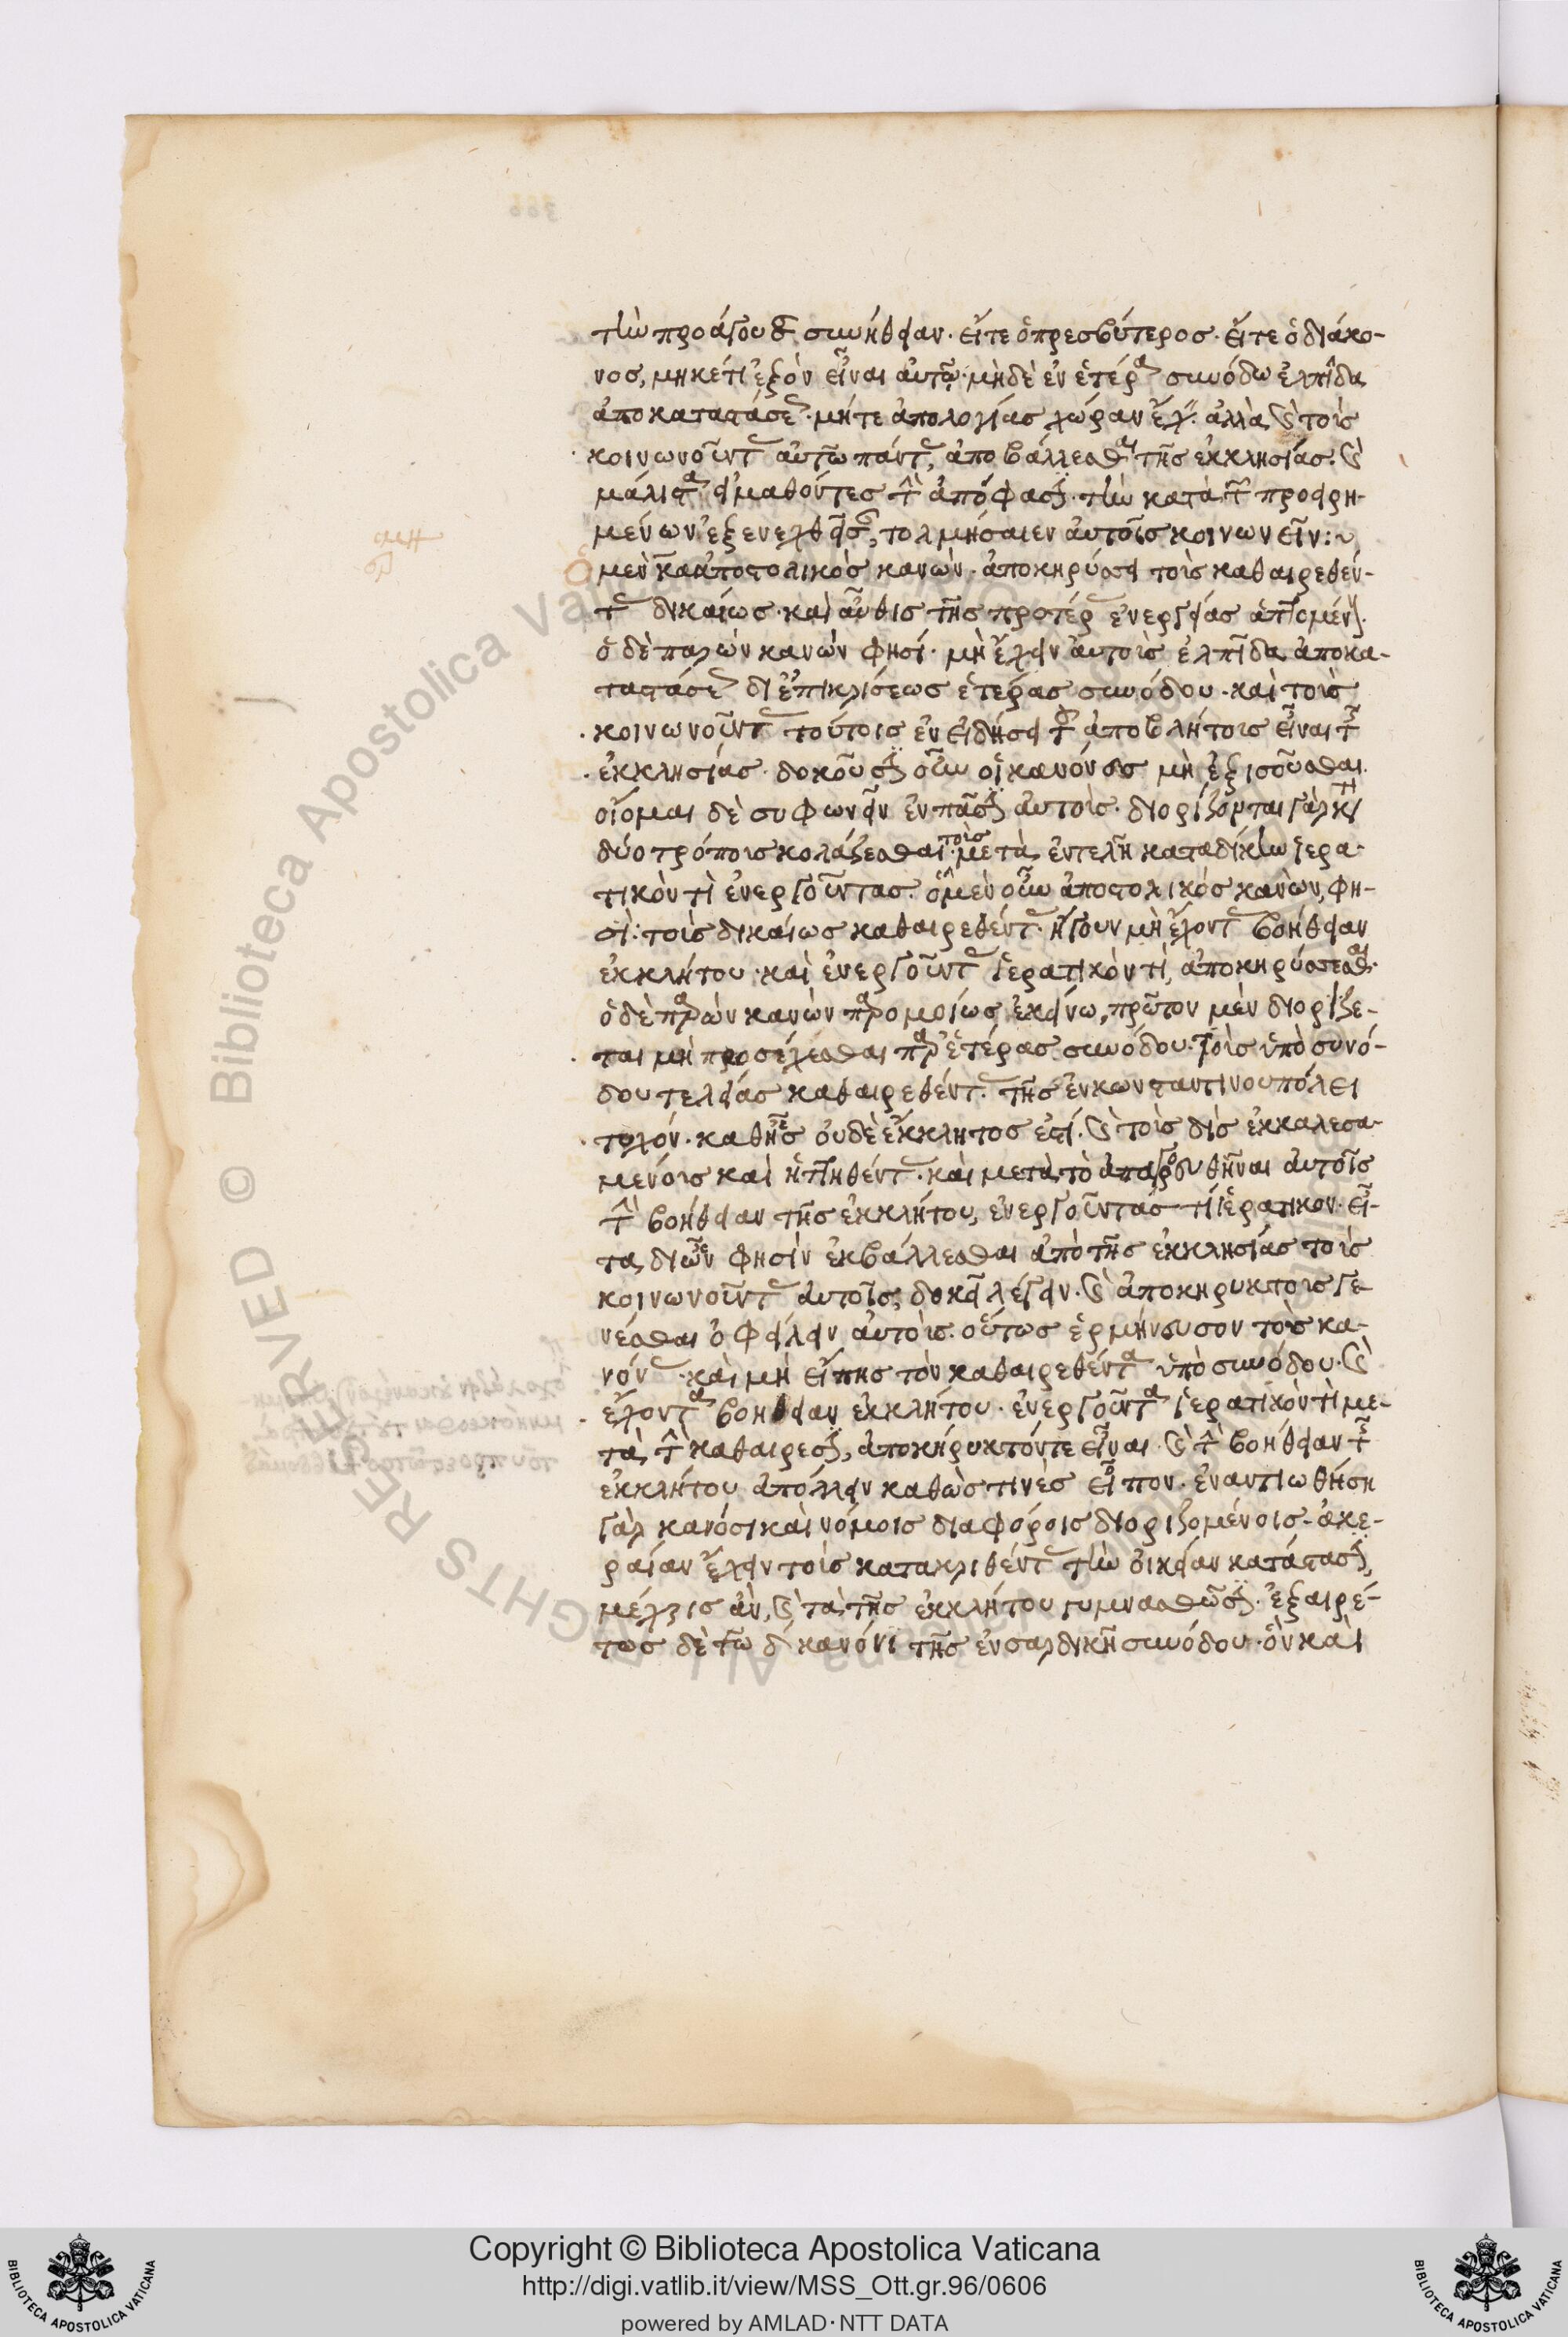 τὴν προάγουσαν συνήθειαν· εἴτε ὁ πρεσβύτερος· εἴτε ὁ διάκο-
νος, μηκέτι ἐξὸν εἶναι αὐτῷ· μηδὲ ἐν ἑτέρα συνόδω ἐλπίδα
ἀποκαταστάσεως· μήτε ἀπολογίας χώραν ἔχειν· ἀλλὰ καὶ τοὺς
κοινωνοῦντας αὐτῶ πάντας, ἀποβάλλεσθαι τῆς ἐκκλησίας· καὶ
μάλιστα εἰ μαθόντες τὴν ἀπόφασιν· τὴν κατὰ τῶν προειρη-
μένων ἐξενεχθεῖσαν, τολμήσαιεν αὐτοῖς κοινωνεῖν:~
Ὁ μὲν κη ἀποστολικὸς κανὼν· ἀποκηρύσσει τοὺς καθαιρεθέν-
τας δικαίως· καὶ αὖθις τῆς προτέρας ἐνεργείας ἁπτομένους.
ὁ δὲ παρὼν κανών φησί· μὴ ἔχειν αὐτοὺς ἐλπίδα ἀποκα-
ταστάσεως δι' ἐπικλίσεως ἑτέρας συνόδου· καὶ τοὺς
κοινωνοῦντας τούτοις ἐν εἰδήσει τοῦ ἀποβλήτους εἶναι τῆς
ἐκκλησίας· δοκοῦσιν οὖν οἱ κανόνες μὴ ἐξισοῦσθαι.
οἶομαι δὲ συφωνεῖν ἐν πᾶσιν αὐτοὺς· διορίζονται γὰρ κατὰ
δύο τρόπους κολάζεσθαι τοὺς μετὰ ἐντελῆ καταδίκην ἱερα-
τικόν τὶ ἐνεργοῦντας· ὁ μὲν οὖν ἀποστολικός κανὼν, φη-
σὶ· τοὺς δικαίως καθαιρεθέντας· ἤγουν μὴ ἔχοντας βοήθειαν
ἐκκλήτου· καὶ ἐνεργοῦντας ἱερατικὸν τὶ, ἀποκηρύσσεσθαι·
ὁ δὲ παρὼν κανὼν παρομοίως ἐκείνω, πρῶτον μὲν διορίζε-
ται μὴ προσέχεσθαι παρ' ἑτέρας συνόδου· τοὺς ὑπὸ συνό-
δου τελείας καθαιρεθέντας· τῆς ἐν κωνσταντινουπόλει
τυχόν· καθ' ἧς οὐδὲ ἔκκλητος ἐστί· καὶ τοὺς δὶς ἐκκαλεσα-
μένους καὶ ἡττηθέντας· καὶ μετὰ τὸ ἀπαγορευθῆναι αὐτοῖς
τὴν βοήθειαν τῆς ἐκκλήτου, ἐνεργοῦντας τὶ ἱερατικον· εἶ-
τα, δι' ὧν φησὶν ἐκβάλλεσθαι ἀπὸ τῆς ἐκκλησίας τοὺς
κοινωνοῦντας αὐτοῖς, δοκεῖ λέγειν· καὶ ἀποκηρύκτους γε-
νέσθαι ὀφείλειν αὐτοὺς· οὕτως ἑρμήνευσον τοὺς κα-
νόνας· καὶ μὴ εἴπης τὸν καθαιρεθέντα ὑπὸ συνόδου· καὶ
ἔχοντα βοήθειαν ἐκκλήτου· ἐνεργοῦντα ἱερατικὸν τὶ με-
τὰ τὴν καθαιρεσιν, ἀποκήρυκτόν τε εἶναι· καὶ τὴν βοήθειαν τῆς
ἐκκλήτου ἀπόλλειν καθὼς τινὲς εἶπον· ἐναντιωθήση
γὰρ κανόσι καὶ νόμοις διαφόροις διοριζομένοις· ἀκε-
ραίαν ἔχειν τοὺς κατακριθέντας τὴν οἰκείαν κατάστασιν,
μέχρις ἂν, καὶ τὰ τῆς ἐκκλήτου γυμνασθῶσιν· ἐξαιρέ-
τως δὲ τῶ δ κανόνι τῆς ἐν σαρδικῆ συνόδου· ὃν καὶ
Copyright © Biblioteca Apostolica Vaticana
http://digi.vatlib.it/view/MSS_Ott.gr.96/0606
powered by AMLAD·NTT DATA